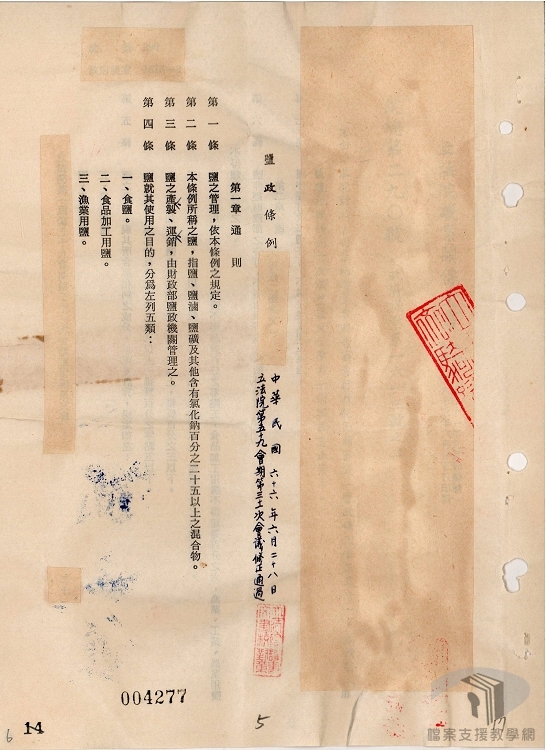 鹽政條例
中華民國六十六年六月二十八日
立法院第五十九會期第三十二次會議修正通過
第一章 通則
第一條 鹽之管理，依本條例之規定。
第二條 本條例所稱之鹽，指鹽、鹽滷、鹽礦及其他含有氯化鈉百分之二十五以上之混合物。
第三條 鹽之產製、運銷，由財政部鹽政機關管理之。
第四條 鹽就其使用之目的，分為左列五類：
一、食鹽。
二、食品加工用鹽。
三、漁業用鹽。
004277
6
14
5
17
檔案支援教學網